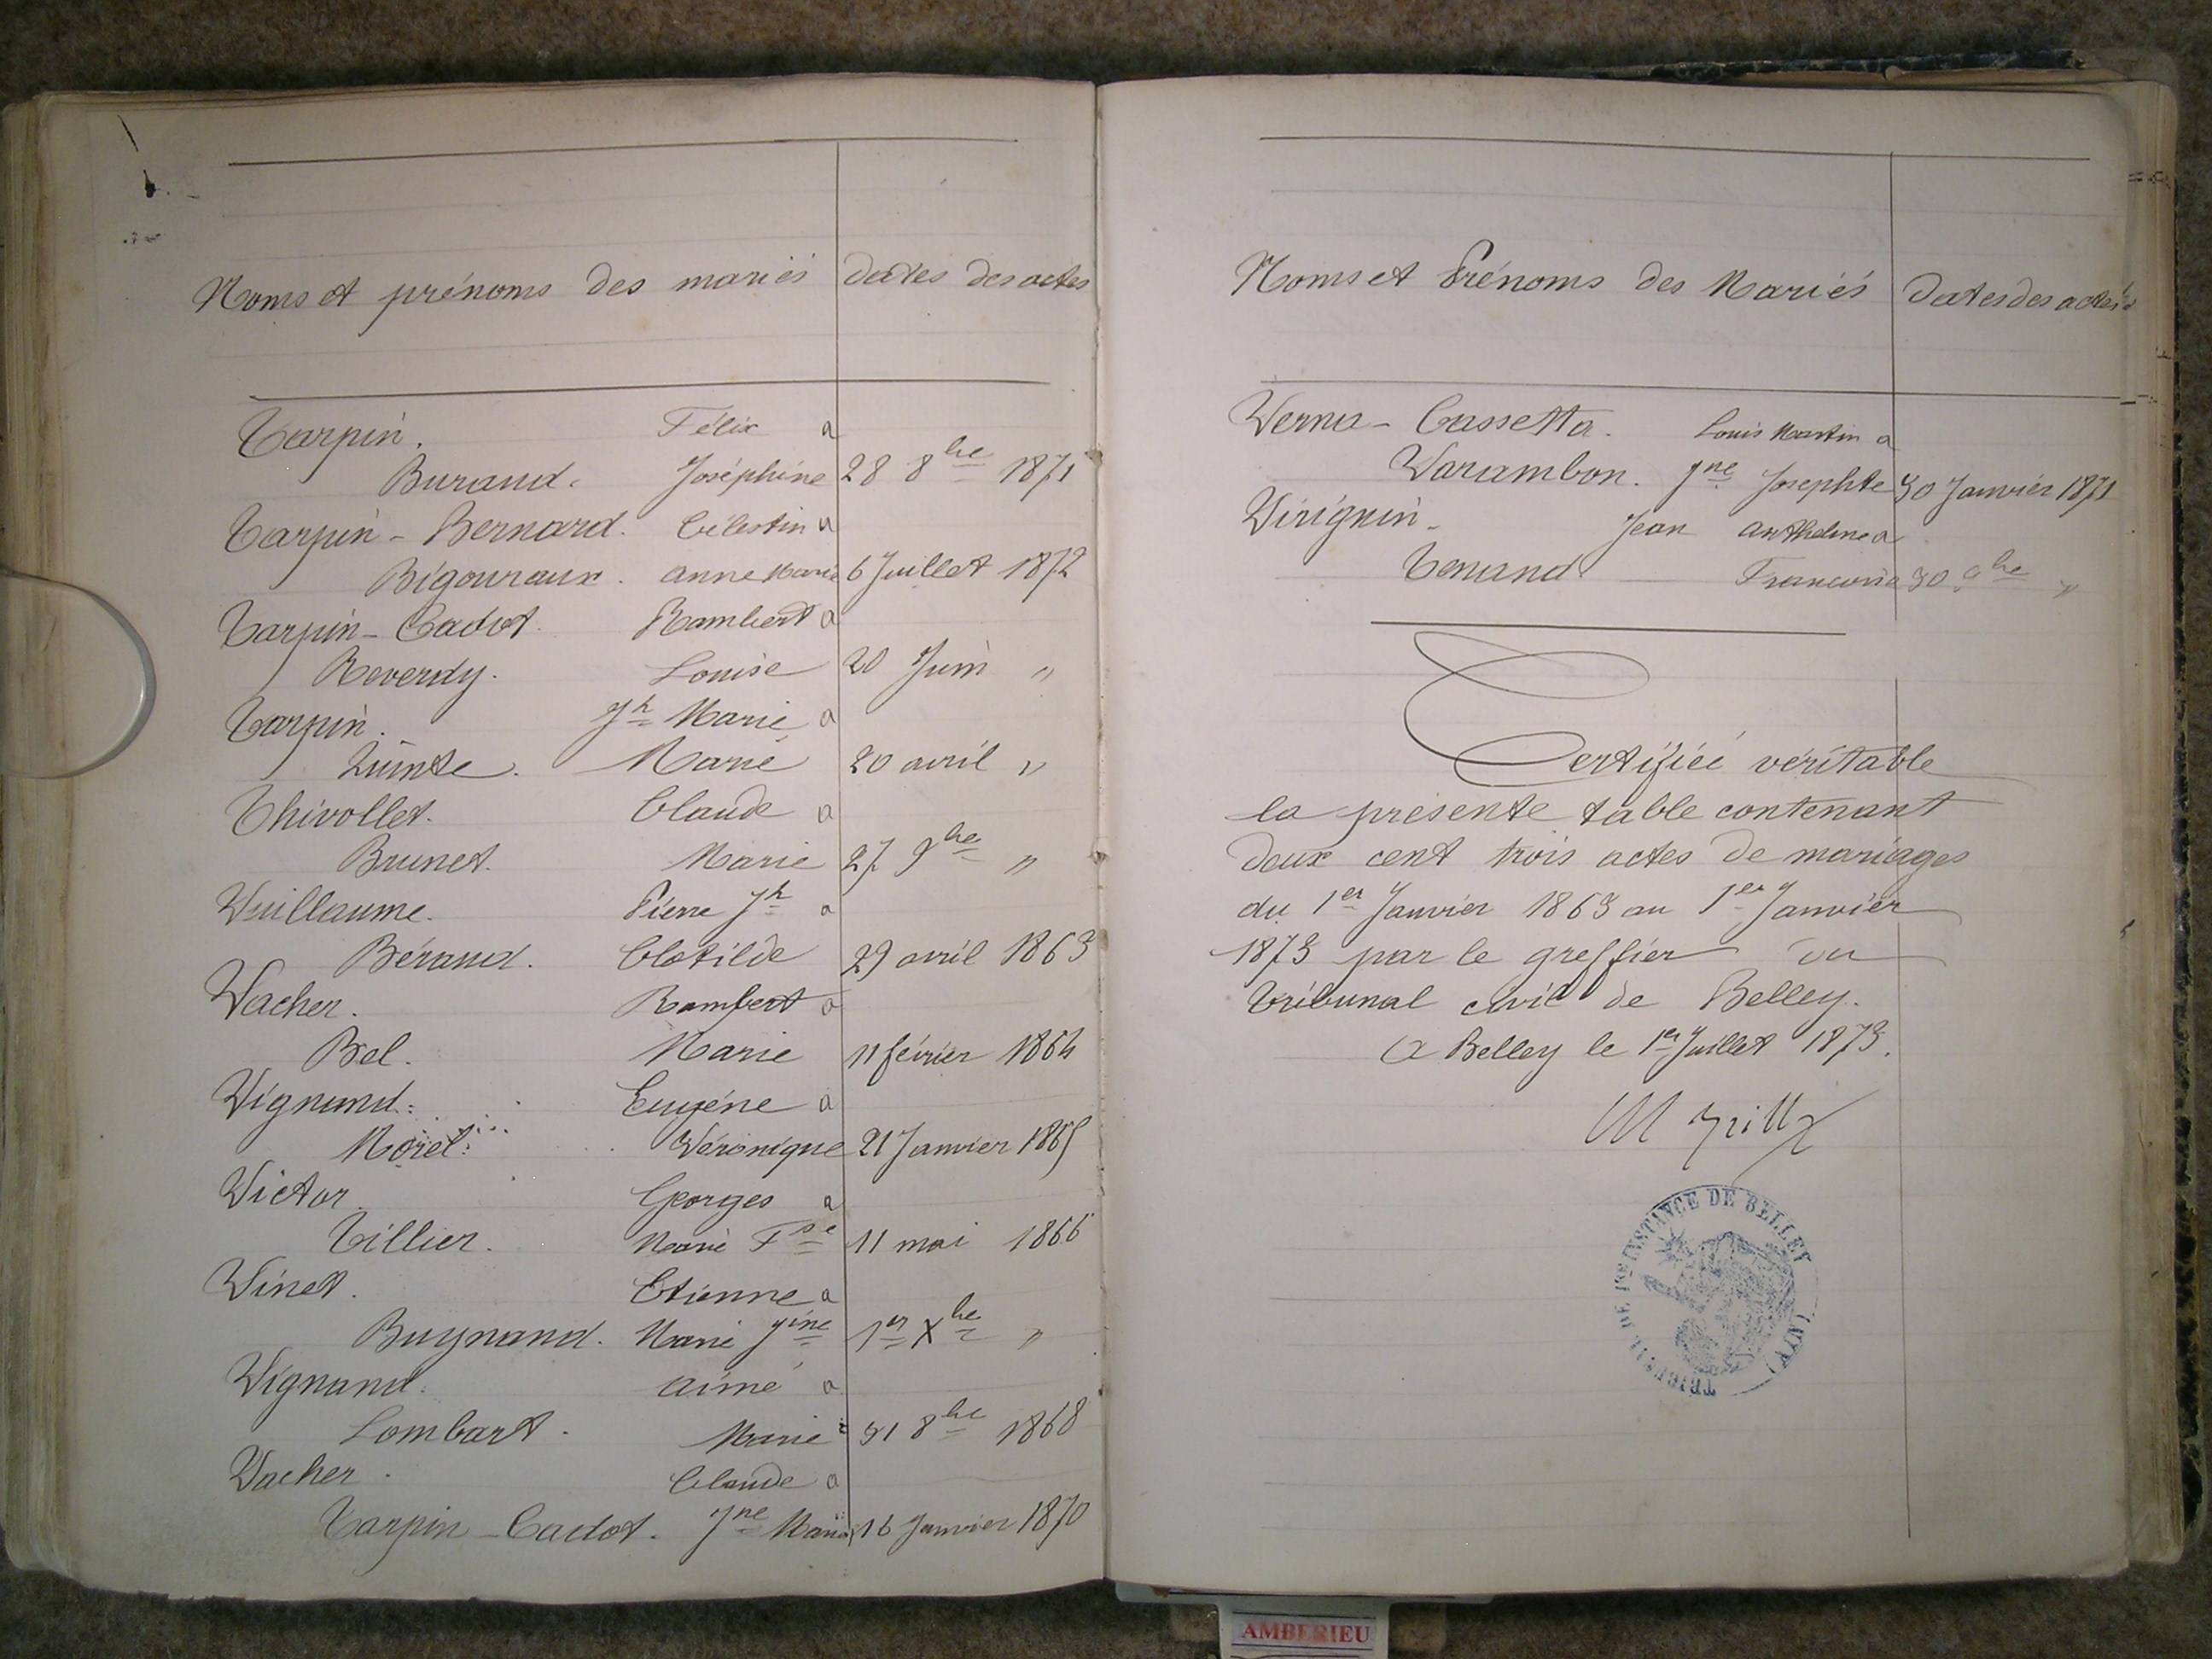 Noms et prénoms des mariés dates des actes
Tarpin. Félix a
Buraud. Joséphine 28 8bre 1871
Tarpin - Bernard. Célestin a
Bigouraux. Anne Marie 6 Juillet 1872
Tarpin - Cadot. Rambert a
Reverdy. Louise 20 Juin "
Tarpin. Jh Marie a
Marie 20 avril "
Thivollet. Claude a
Brunet. Marie 27 9bre "
Vuillaume. Pierre Jh a
Béraud. Clotilde 29 avril 1863
Vacher. Rambert a
Bel. Marie 11 février 1864
Vignand. Eugéne a
Morel. Véronique 21 Janvier 1865
Victor Georges a
Tillier. Marie Fse 11 mai 1866
Vinet. Etienne a
Buynand. Marie Jine 1er Xbre "
Vignand. aimé a
Lombart. Marie 31 8bre 1868
Vacher. Claude a
Tarpin - Cadot. Jne Marie 16 Janvier 1870
Noms et Prénoms des Mariés Dates des actes
Verna - Cassetta. Louis Martin a
Varambon. Jne Josephte 30 Janvier 1871
Virignin - Jean Anthelme a
Tenand Francoise 30 9bre "
Certifiée véritable
la présente table contenant
deux cent trois actes de mariages
du 1er Janvier 1863 au 1er Janvier
1873 par le greffier du
tribunal civil de Belley.
a Belley le 1er Juillet 1873.
TRIBUNAL DE 1RE INSTANCE DE BELLEY (AIN)
AMBERIEU